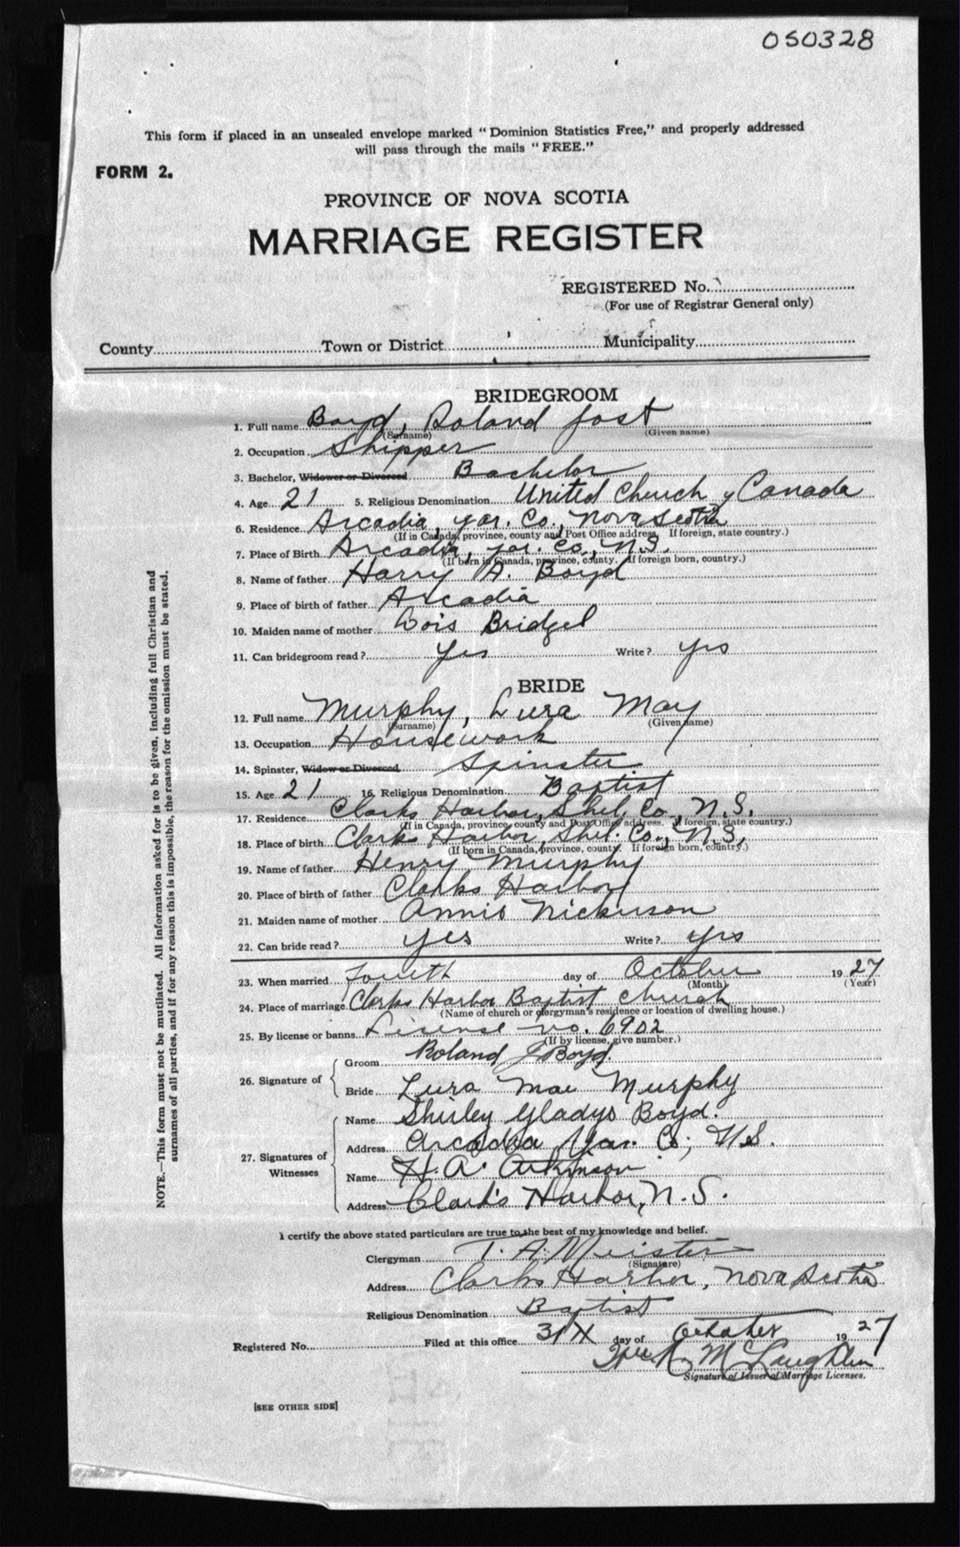 050328
This form if placed in an unsealed envelope marked "Dominion Statistics Free," and properly addressed
will pass through the mails "FREE."
FORM 2.
PROVINCE OF NOVA SCOTIA
MARRIAGE REGISTER
REGISTERED No.
(For use of Registrar General only)
County Town or District Municipality
BRIDEGROOM
1. Full name Boyd, Roland Jost
(Surname) (Given name)
2. Occupation Shipper
3. Bachelor, Widower or Divorced Bachelor
4. Age 21 5. Religious Denomination United Church of Canada
6. Residence Arcadia, Yar. Co., Nova Scotia
(If in Canada, province, county and Post Office address. If foreign, state country.)
7. Place of Birth Arcadia, Yar. Co., N.S.
(If born in Canada, province, county. If foreign born, country.)
8. Name of father Harry A. Boyd
9. Place of birth of father Arcadia
10. Maiden name of mother Lois
11. Can bridegroom read? Yes Write? Yes
BRIDE
12. Full name Murphy, Lura May
(Surname) (Given name)
13. Occupation Housework
14. Spinster, Widow or Divorced Spinster
15. Age 21 16. Religious Denomination Baptist
17. Residence Clarks Harbor, Shel. Co., N.S.
(If in Canada, province, county and Post Office address. If foreign, state country.)
18. Place of birth Clarks Harbor, Shel. Co., N.S.
(If born in Canada, province, county. If foreign born, country.)
19. Name of father Henry Murphy
20. Place of birth of father Clarks Harbor
21. Maiden name of mother Annis Nickerson
22. Can bride read? Yes Write? Yes
23. When married Fourth day of October 1927
(Month) (Year)
24. Place of marriage Clarks Harbor Baptist Church
(Name of church or clergyman's residence or location of dwelling house.)
25. By license or banns License no. 6902
(If by license, give number.)
26. Signature of
Groom Roland J Boyd.
Bride Lura Mae Murphy
27. Signatures of Witnesses
Name Shirley Gladys Boyd.
Address Arcadia Yar. Co, N.S.
Name H. A. Atkinson
Address Clark's Harbor, N.S.
I certify the above stated particulars are true to the best of my knowledge and belief.
Clergyman T. A. Meister
(Signature)
Address Clarks Harbor, Nova Scotia
Religious Denomination Baptist
Registered No. Filed at this office 31st day of October 1927
McLaughlin
Signature of Issuer of Marriage Licenses.
[SEE OTHER SIDE]
NOTE.—This form must not be mutilated. All information asked for is to be given, including full Christian and
surnames of all parties, and if for any reason this is impossible, the reason for the omission must be stated.